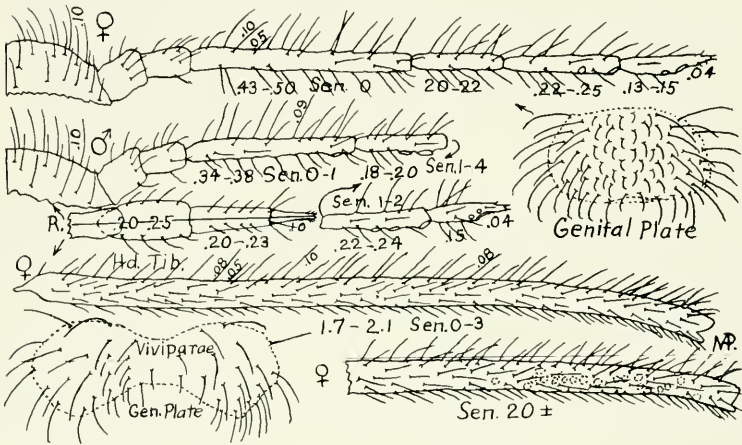 .10 ♀ .10 .05
.43-.50 Sen. 0 .20-.22 .22-.25 .13-.15 .04
.10 ♂ .09
.34-.38 Sen. 0-1 .18-.20 Sen. 1-4
Genital Plate
R. .20-.25 .20-.23 .10 Sen. 1-2 .22-.24 .15 .04
♀ Hd. Tib. .08 .05 .10 .08
1.7-2.1 Sen. 0-3
Viviparae
Gen. Plate
♀ Sen. 20 ±